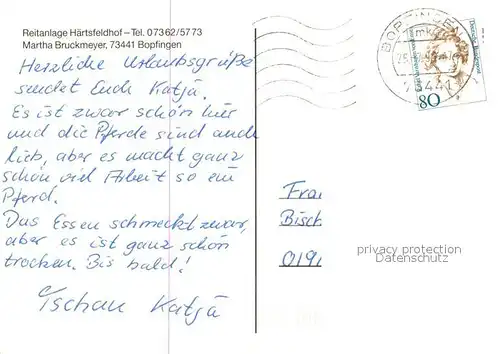 Reitanlage Härtsfeldhof – Tel. 07362/5773
Martha Bruckmeyer, 73441 Bopfingen
Herzliche Urlaubsgrüße
sendet Euch Katja.
Es ist zwar schön hier
und die Pferde sind auch
lieb, aber es macht ganz
schön viel Arbeit so ein
Pferd.
Das Essen schmeckt zwar,
aber es ist ganz schön
trocken. Bis bald!
Tschau Katja
BOPFINGEN
73441
Deutsche Bundespost
80
Fra
Bisch
019
privacy protection
Datenschutz